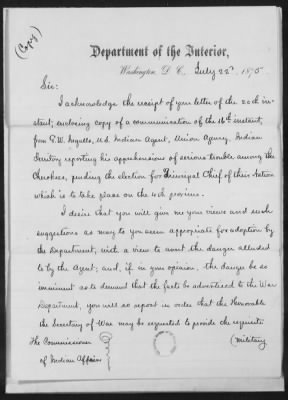 (Copy)
Department of the Interior,
Washington, D. C. July 22d 1875
Sir:
I acknowledge the receipt of your letter of the 20th in-
stant, enclosing copy of a communication of the 16th instant,
from G.W. Ingalls, U.S. Indian Agent, Union Agency, Indian
Territory reporting his apprehensions of serious trouble among the
Cherokees, pending the election for Principal Chief of their Nation
which is to take place on the 4th proximo.
I desire that you will give me your views and such
suggestions as may to you seem appropriate for adoption by
the Department, with a view to avert the danger alluded
to by the Agent; and, if in your opinion, the danger be so
imminent as to demand that the facts be advertised to the War
Department, you will so report in order that the Honorable
the Secretary of War may be requested to provide the requisite
The Commissioner
(military
of Indian Affairs